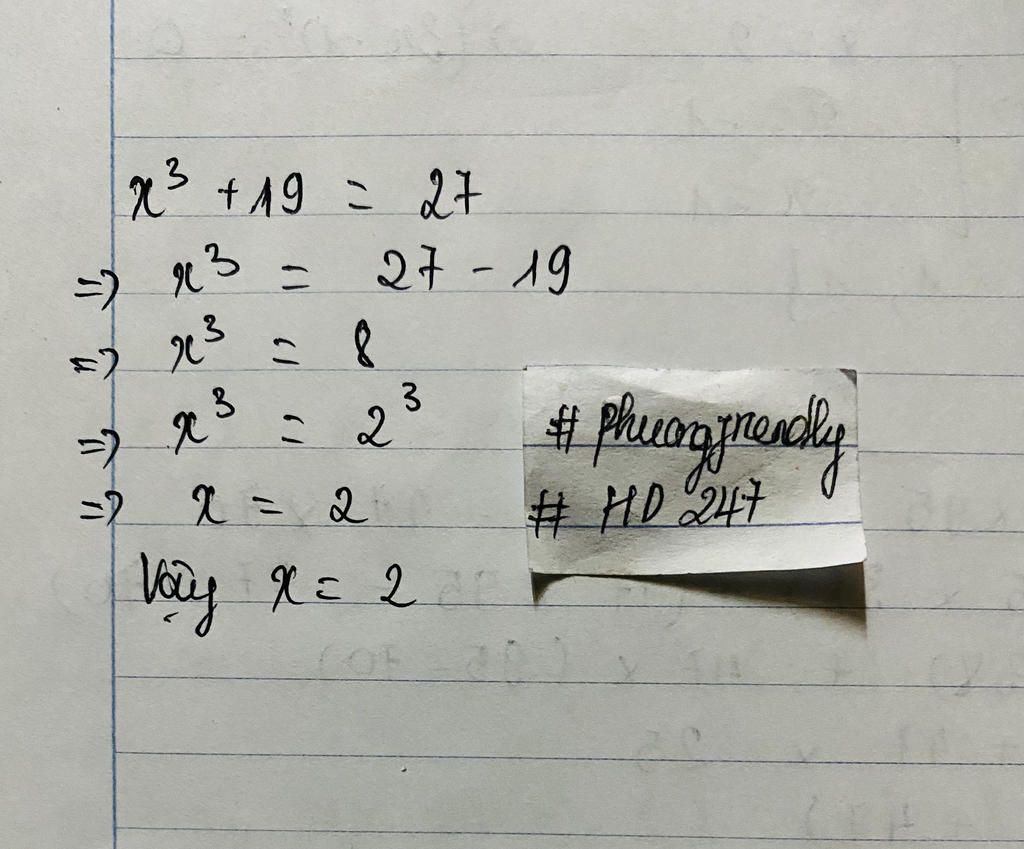 x³ + 19 = 27
=> x³ = 27 - 19
=> x³ = 8
=> x³ = 2³
=> x = 2
Vậy x = 2
# phuongfriendly
# HD 247